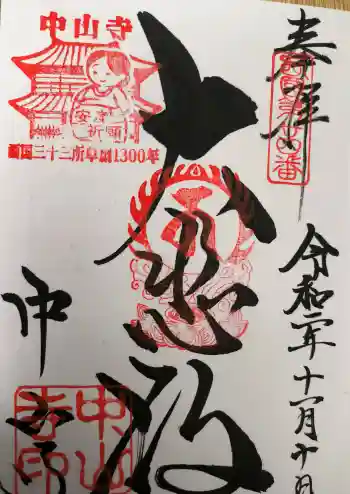 奉拝
令和二年十一月十日
大悲殿
中山寺
中山寺
安産
祈願
西国三十三所草創1300年
中山
寺印